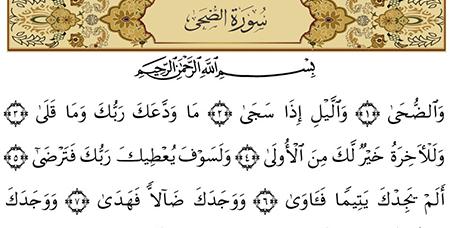 سُورَةُ الضُّحَىٰ
بِسْمِ اللَّهِ الرَّحْمَٰنِ الرَّحِيمِ
وَالضُّحَىٰ ﴿١﴾ وَالَّيْلِ إِذَا سَجَىٰ ﴿٢﴾ مَا وَدَّعَكَ رَبُّكَ وَمَا قَلَىٰ ﴿٣﴾
وَلَلْآخِرَةُ خَيْرٌ لَّكَ مِنَ الْأُولَىٰ ﴿٤﴾ وَلَسَوْفَ يُعْطِيكَ رَبُّكَ فَتَرْضَىٰ ﴿٥﴾
أَلَمْ يَجِدْكَ يَتِيمًا فَـَٔاوَىٰ ﴿٦﴾ وَوَجَدَكَ ضَآلًّا فَهَدَىٰ ﴿٧﴾ وَوَجَدَكَ